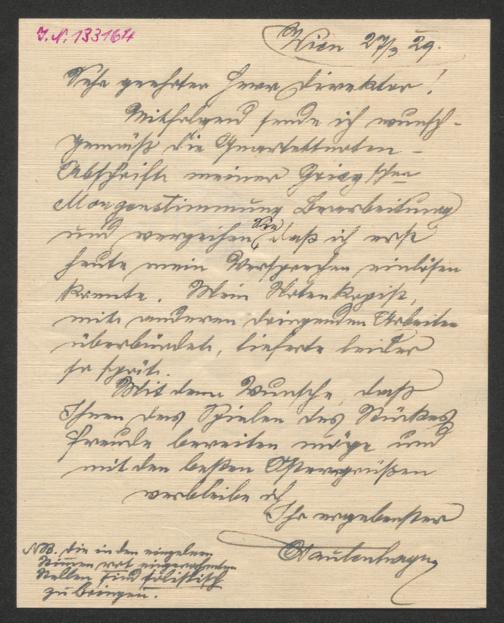 J.N. 133164
Wien 27/3 29.
Sehr geehrter Herr Direktor!
Mitfolgend sende ich wunsch-
gemäß die Quartettnoten-
Abschrift meiner Grieg'schen
Morgenstimmung Bearbeitung
und verzeihen Sie, daß ich erst
heute mein Versprechen einlösen
konnte. Mein Notenkopist,
mit anderen dringenden Arbeiten
überbürdet, lieferte leider
so spät.
Mit dem Wunsche, daß
Ihnen das Spielen des Stückes
Freude bereiten möge und
mit den besten Ostergrüßen
verbleibe ich
Ihr ergebenster
NB. Die in den einzelnen
Stimmen rot eingerahmten
Stellen sind solistisch
zu bringen.